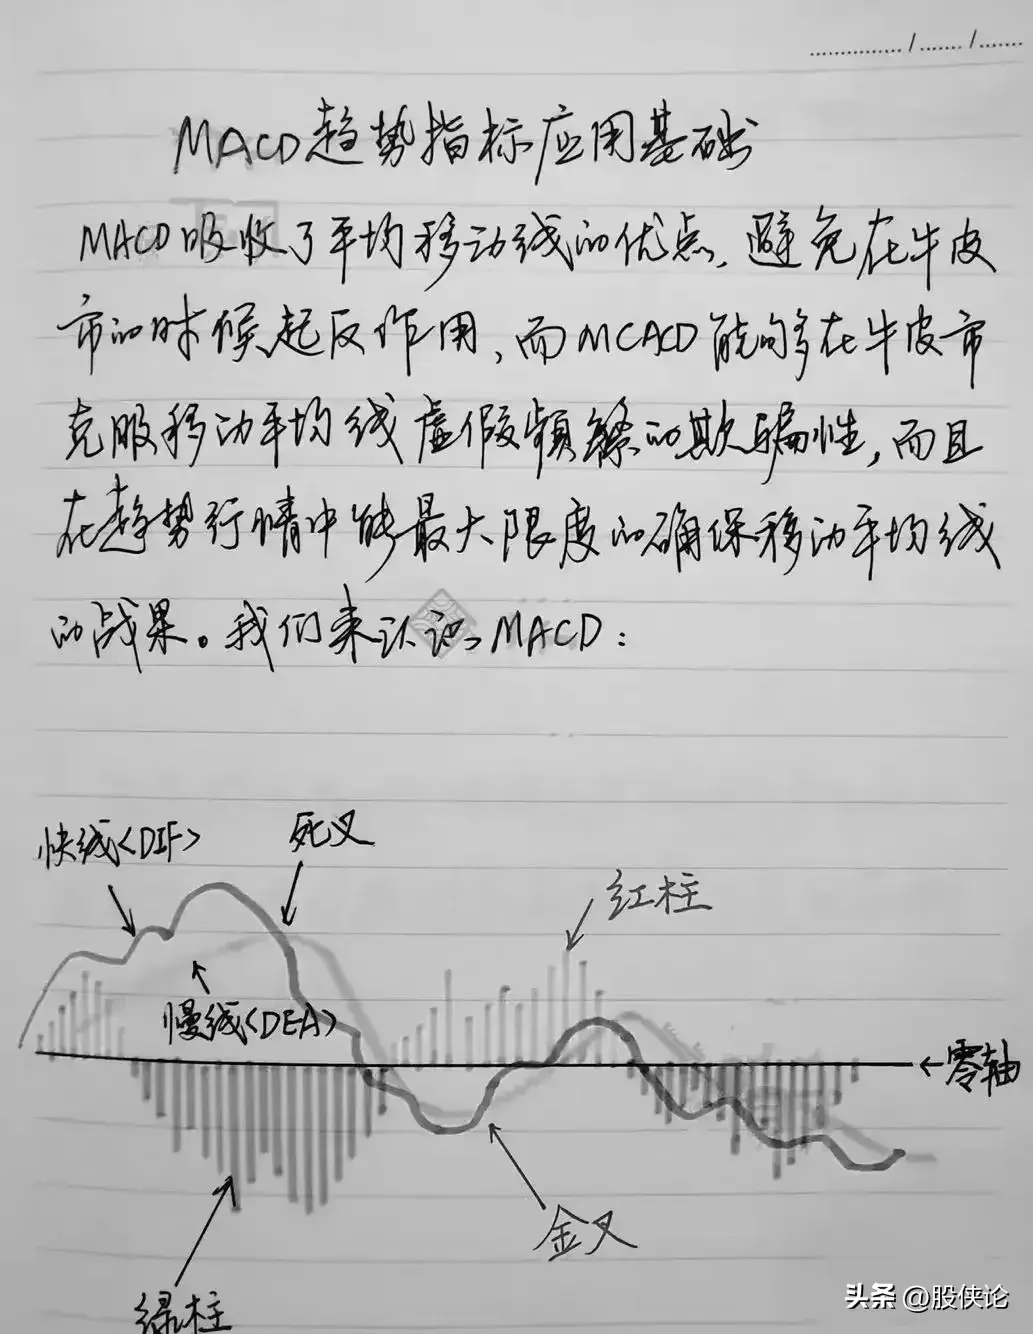 MACD趋势指标应用基础
MACD吸收了平均移动线的优点，避免在牛皮
市的时候起反作用，而MCACD能够多在牛皮市
克服移动平均线虚假频繁的欺骗性，而且
在趋势行情中能最大限度的确保移动平均线
的战果。我们来认识MACD：
快线<DIF>
死叉
红柱
慢线<DEA>
←零轴
金叉
绿柱
头条 @股侠论